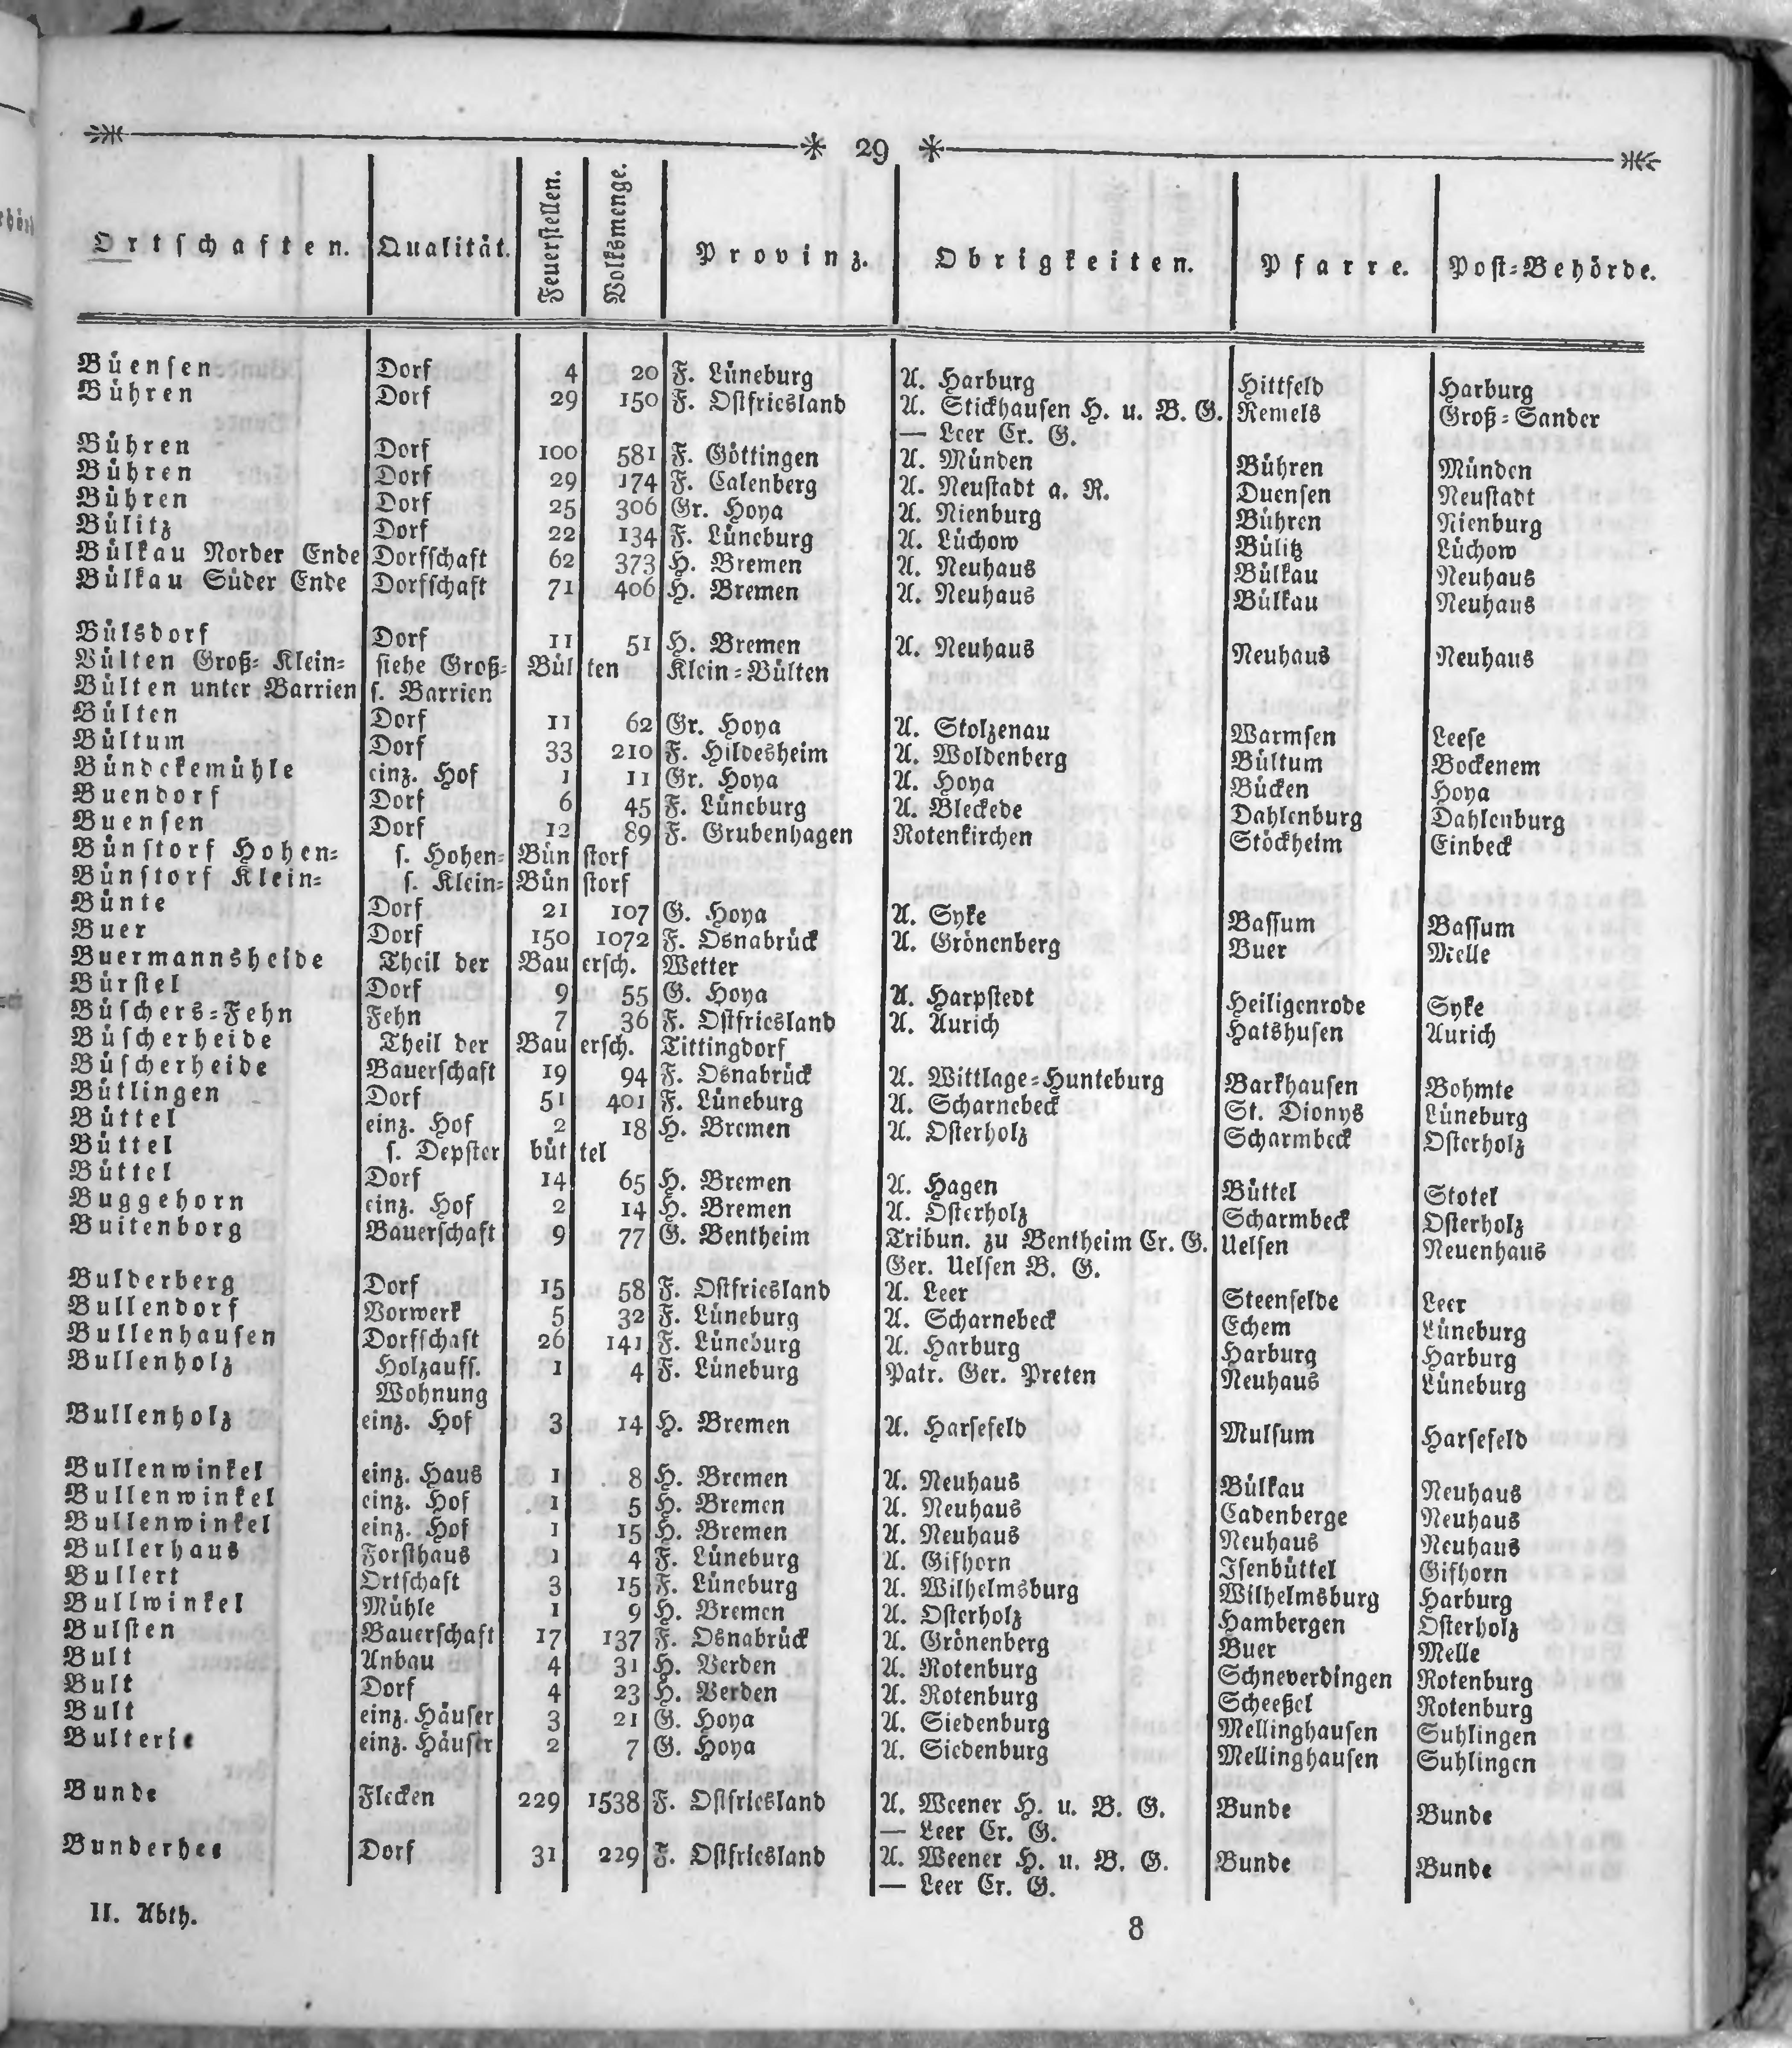 29
Ortschaften. Qualität. Feuerstellen. Volksmenge. Provinz. Obrigkeiten. Pfarre. Post=Behörde.
Büensen Dorf 4 20 F. Lüneburg A. Harburg Hittfeld Harburg
Bühren Dorf 29 150 F. Ostfriesland A. Stickhausen H. u. B. G. Remels Groß=Sander
— Leer Cr. G.
Bühren Dorf 100 581 F. Göttingen A. Münden Bühren Münden
Bühren Dorf 29 174 F. Calenberg A. Neustadt a. R. Duensen Neustadt
Bühren Dorf 25 306 Gr. Hoya A. Nienburg Bühren Nienburg
Bülitz Dorf 22 134 F. Lüneburg A. Lüchow Bülitz Lüchow
Bülkau Norder Ende Dorfschaft 62 373 H. Bremen A. Neuhaus Bülkau Neuhaus
Bülkau Süder Ende Dorfschaft 71 406 H. Bremen A. Neuhaus Bülkau Neuhaus
Bülsdorf Dorf 11 51 H. Bremen A. Neuhaus Neuhaus Neuhaus
Bülten Groß= Klein= siehe Groß= Bülten Klein=Bülten
Bülten unter Barrien s. Barrien
Bülten Dorf 11 62 Gr. Hoya A. Stolzenau Warmsen Leese
Bültum Dorf 33 210 F. Hildesheim A. Woldenberg Bültum Bockenem
Bündckemühle einz. Hof 1 11 Gr. Hoya A. Hoya Bücken Hoya
Buendorf Dorf 6 45 F. Lüneburg A. Bleckede Dahlenburg Dahlenburg
Buensen Dorf 12 89 F. Grubenhagen Rotenkirchen Stöckheim Einbeck
Bünstorf Hohen= s. Hohen= Bünstorf
Bünstorf Klein= s. Klein= Bünstorf
Bünte Dorf 21 107 G. Hoya A. Syke Bassum Bassum
Buer Dorf 150 1072 F. Osnabrück A. Grönenberg Buer Melle
Buermannsheide Theil der Bauersch. Wetter
Bürstel Dorf 9 55 G. Hoya A. Harpstedt Heiligenrode Syke
Büschers=Fehn Fehn 7 36 F. Ostfriesland A. Aurich Hatshusen Aurich
Büscherheide Theil der Bauersch. Tittingdorf
Büscherheide Bauerschaft 19 94 F. Osnabrück A. Wittlage=Hunteburg Barkhausen Bohmte
Bütlingen Dorf 51 401 F. Lüneburg A. Scharnebeck St. Dionys Lüneburg
Büttel einz. Hof 2 18 H. Bremen A. Osterholz Scharmbeck Osterholz
Büttel s. Depster büttel
Büttel Dorf 14 65 H. Bremen A. Hagen Büttel Stotel
Buggehorn einz. Hof 2 14 H. Bremen A. Osterholz Scharmbeck Osterholz
Buitenborg Bauerschaft 9 77 G. Bentheim Tribun. zu Bentheim Cr. G. Uelsen Neuenhaus
Ger. Uelsen B. G.
Bulderberg Dorf 15 58 F. Ostfriesland A. Leer Steenfelde Leer
Bullendorf Vorwerk 5 32 F. Lüneburg A. Scharnebeck Echem Lüneburg
Bullenhausen Dorfschaft 26 141 F. Lüneburg A. Harburg Harburg Harburg
Bullenholz Holzauff. 1 4 F. Lüneburg Patr. Ger. Preten Neuhaus Lüneburg
Wohnung
Bullenholz einz. Hof 3 14 H. Bremen A. Harsefeld Mulsum Harsefeld
Bullenwinkel einz. Haus 1 8 H. Bremen A. Neuhaus Bülkau Neuhaus
Bullenwinkel einz. Hof 1 5 H. Bremen A. Neuhaus Cadenberge Neuhaus
Bullenwinkel einz. Hof 1 15 H. Bremen A. Neuhaus Neuhaus Neuhaus
Bullerhaus Forsthaus 1 4 F. Lüneburg A. Gifhorn Isenbüttel Gifhorn
Bullert Ortschaft 3 15 F. Lüneburg A. Wilhelmsburg Wilhelmsburg Harburg
Bullwinkel Mühle 1 9 H. Bremen A. Osterholz Hambergen Osterholz
Bulsten Bauerschaft 17 137 F. Osnabrück A. Grönenberg Buer Melle
Bult Anbau 4 31 H. Verden A. Rotenburg Schneverdingen Rotenburg
Bult Dorf 4 23 H. Verden A. Rotenburg Scheeßel Rotenburg
Bult einz. Häuser 3 21 G. Hoya A. Siedenburg Mellinghausen Suhlingen
Bulterie einz. Häuser 2 7 G. Hoya A. Siedenburg Mellinghausen Suhlingen
Bunde Flecken 229 1538 F. Ostfriesland A. Weener H. u. B. G. Bunde Bunde
— Leer Cr. G.
Bunderhee Dorf 31 229 F. Ostfriesland A. Weener H. u. B. G. Bunde Bunde
— Leer Cr. G.
II. Abth. 8